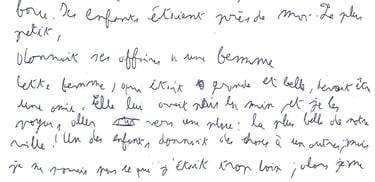 boue. Des enfants étaient près de moi. Le plus
petit,
donnait ses affaires a une femme
Cette femme, qui était grande et belle, devait êt
une amie. Elle lui avait pris la main et je les
voyais, aller vers une place : la plus belle de notre
ville ! Un des enfants, donnait des choses à un autre, mais
je ne par ce que j'étais trop loin ; alors je me